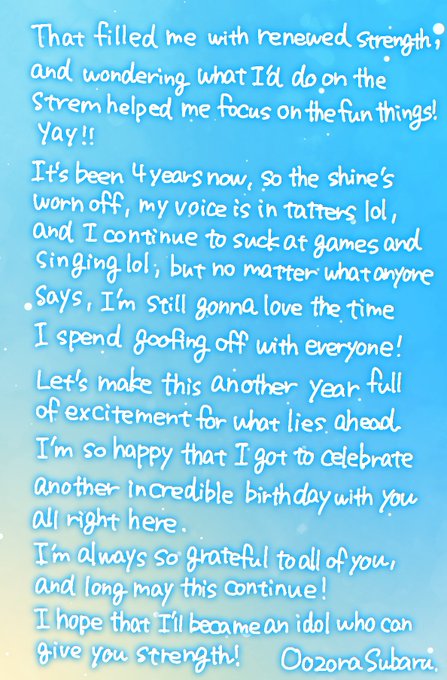 That filled me with renewed strength,
and wondering what I'd do on the
Strem helped me focus on the fun things!
Yay!!
It's been 4 years now, so the shine's
worn off, my voice is in tatters lol,
and I continue to suck at games and
singing lol, but no matter what anyone
says, I'm still gonna love the time
I spend goofing off with everyone!
Let's make this another year full
of excitement for what lies ahead.
I'm so happy that I got to celebrate
another incredible birthday with you
all right here.
I'm always so grateful to all of you,
and long may this continue!
I hope that I'll became an idol who can
give you strength! Oozora Subaru.